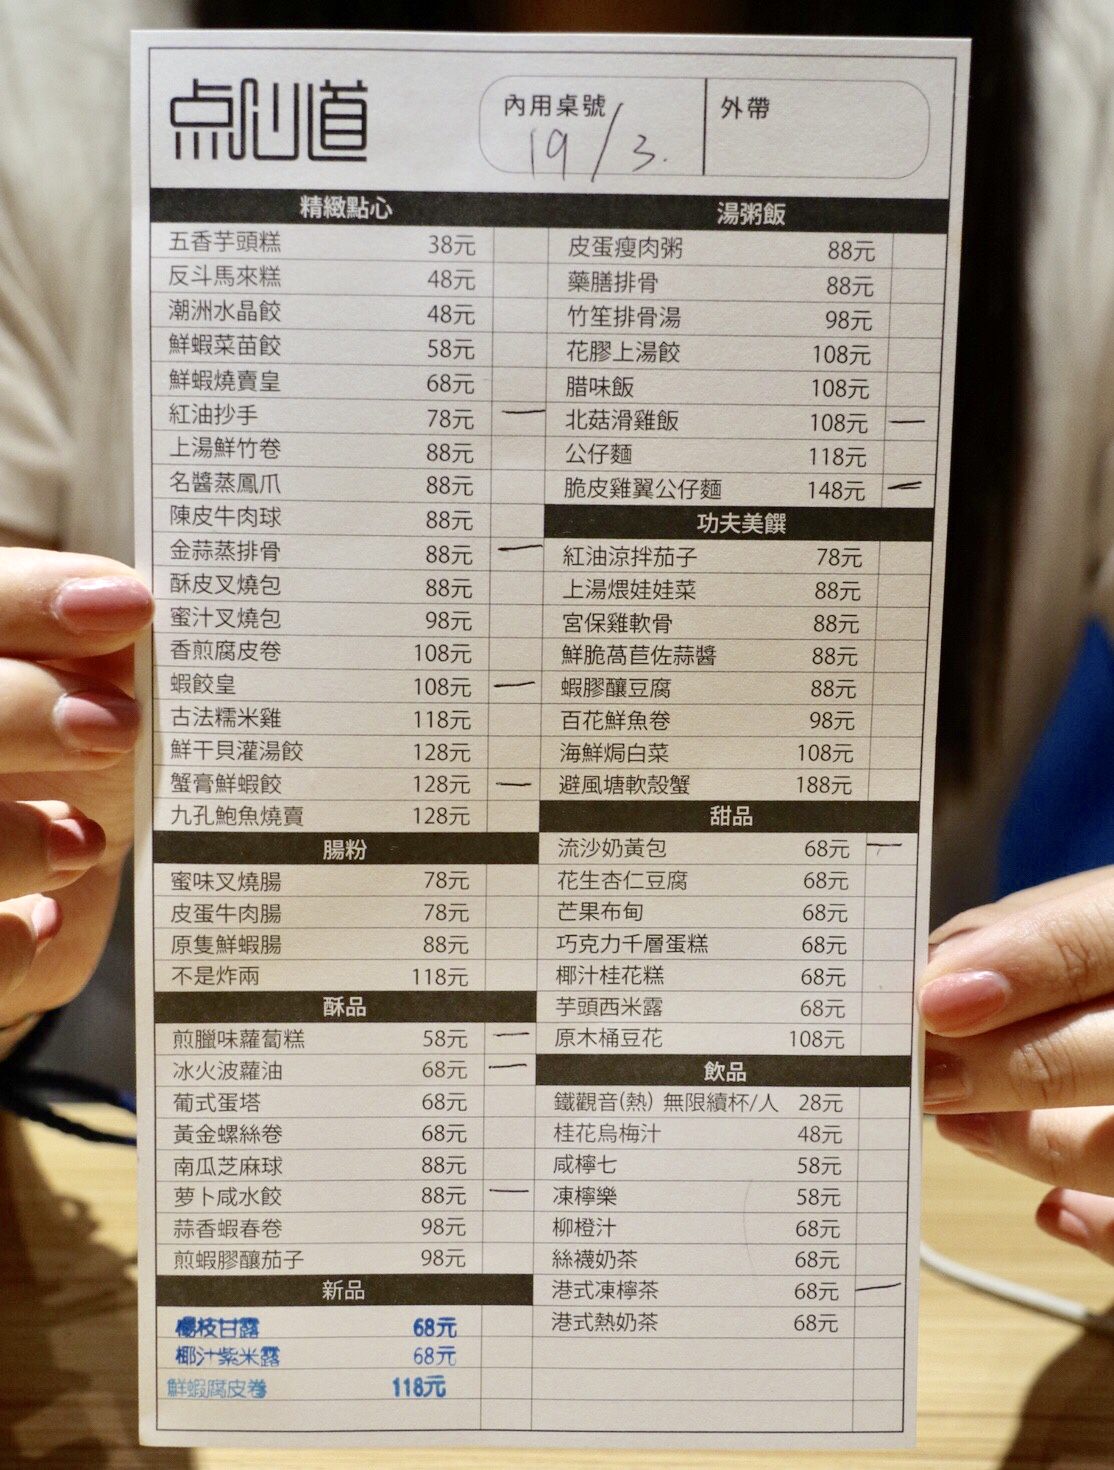 点心道
內用桌號
19/3.
外帶
精緻點心
五香芋頭糕 38元
反斗馬來糕 48元
潮洲水晶餃 48元
鮮蝦菜苗餃 58元
鮮蝦燒賣皇 68元
紅油抄手 78元 一
上湯鮮竹卷 88元
名醬蒸鳳爪 88元
陳皮牛肉球 88元
金蒜蒸排骨 88元 一
酥皮叉燒包 88元
蜜汁叉燒包 98元
香煎腐皮卷 108元
蝦餃皇 108元 一
古法糯米雞 118元
鮮干貝灌湯餃 128元
蟹膏鮮蝦餃 128元 一
九孔鮑魚燒賣 128元
腸粉
蜜味叉燒腸 78元
皮蛋牛肉腸 78元
原隻鮮蝦腸 88元
不是炸兩 118元
酥品
煎臘味蘿蔔糕 58元 一
冰火波蘿油 68元 一
葡式蛋塔 68元
黃金螺絲卷 68元
南瓜芝麻球 88元
萝卜咸水餃 88元 一
蒜香蝦春卷 98元
煎蝦膠釀茄子 98元
新品
楊枝甘露 68元
椰汁紫米露 68元
鮮蝦腐皮卷 118元
湯粥飯
皮蛋瘦肉粥 88元
藥膳排骨 88元
竹笙排骨湯 98元
花膠上湯餃 108元
腊味飯 108元
北菇滑雞飯 108元 一
公仔麵 118元
脆皮雞翼公仔麵 148元 一
功夫美饌
紅油涼拌茄子 78元
上湯煨娃娃菜 88元
宮保雞軟骨 88元
鮮脆萵苣佐蒜醬 88元
蝦膠釀豆腐 88元
百花鮮魚卷 98元
海鮮焗白菜 108元
避風塘軟殼蟹 188元
甜品
流沙奶黃包 68元 一
花生杏仁豆腐 68元
芒果布甸 68元
巧克力千層蛋糕 68元
椰汁桂花糕 68元
芋頭西米露 68元
原木桶豆花 108元
飲品
鐵觀音(熱) 無限續杯/人 28元
桂花烏梅汁 48元
咸檸七 58元
凍檸樂 58元
柳橙汁 68元
絲襪奶茶 68元
港式凍檸茶 68元 一
港式熱奶茶 68元